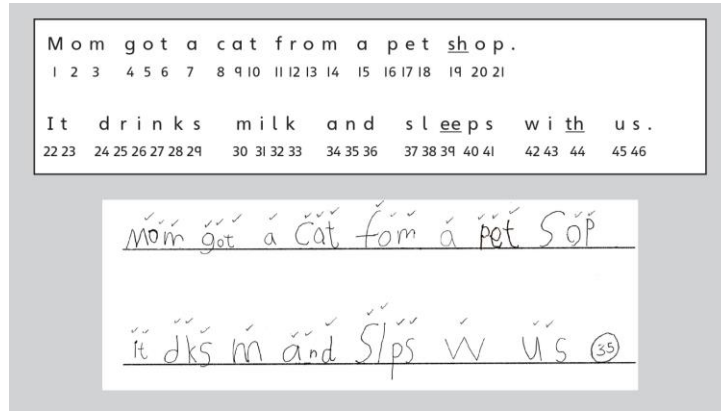 Mom got a cat from a pet shop.
1 2 3 4 5 6 7 8 9 10 11 12 13 14 15 16 17 18 19 20 21
It drinks milk and sleeps with us.
22 23 24 25 26 27 28 29 30 31 32 33 34 35 36 37 38 39 40 41 42 43 44 45 46
Mom got a cat fom a pet Sop
it dks m and Slps w us 35